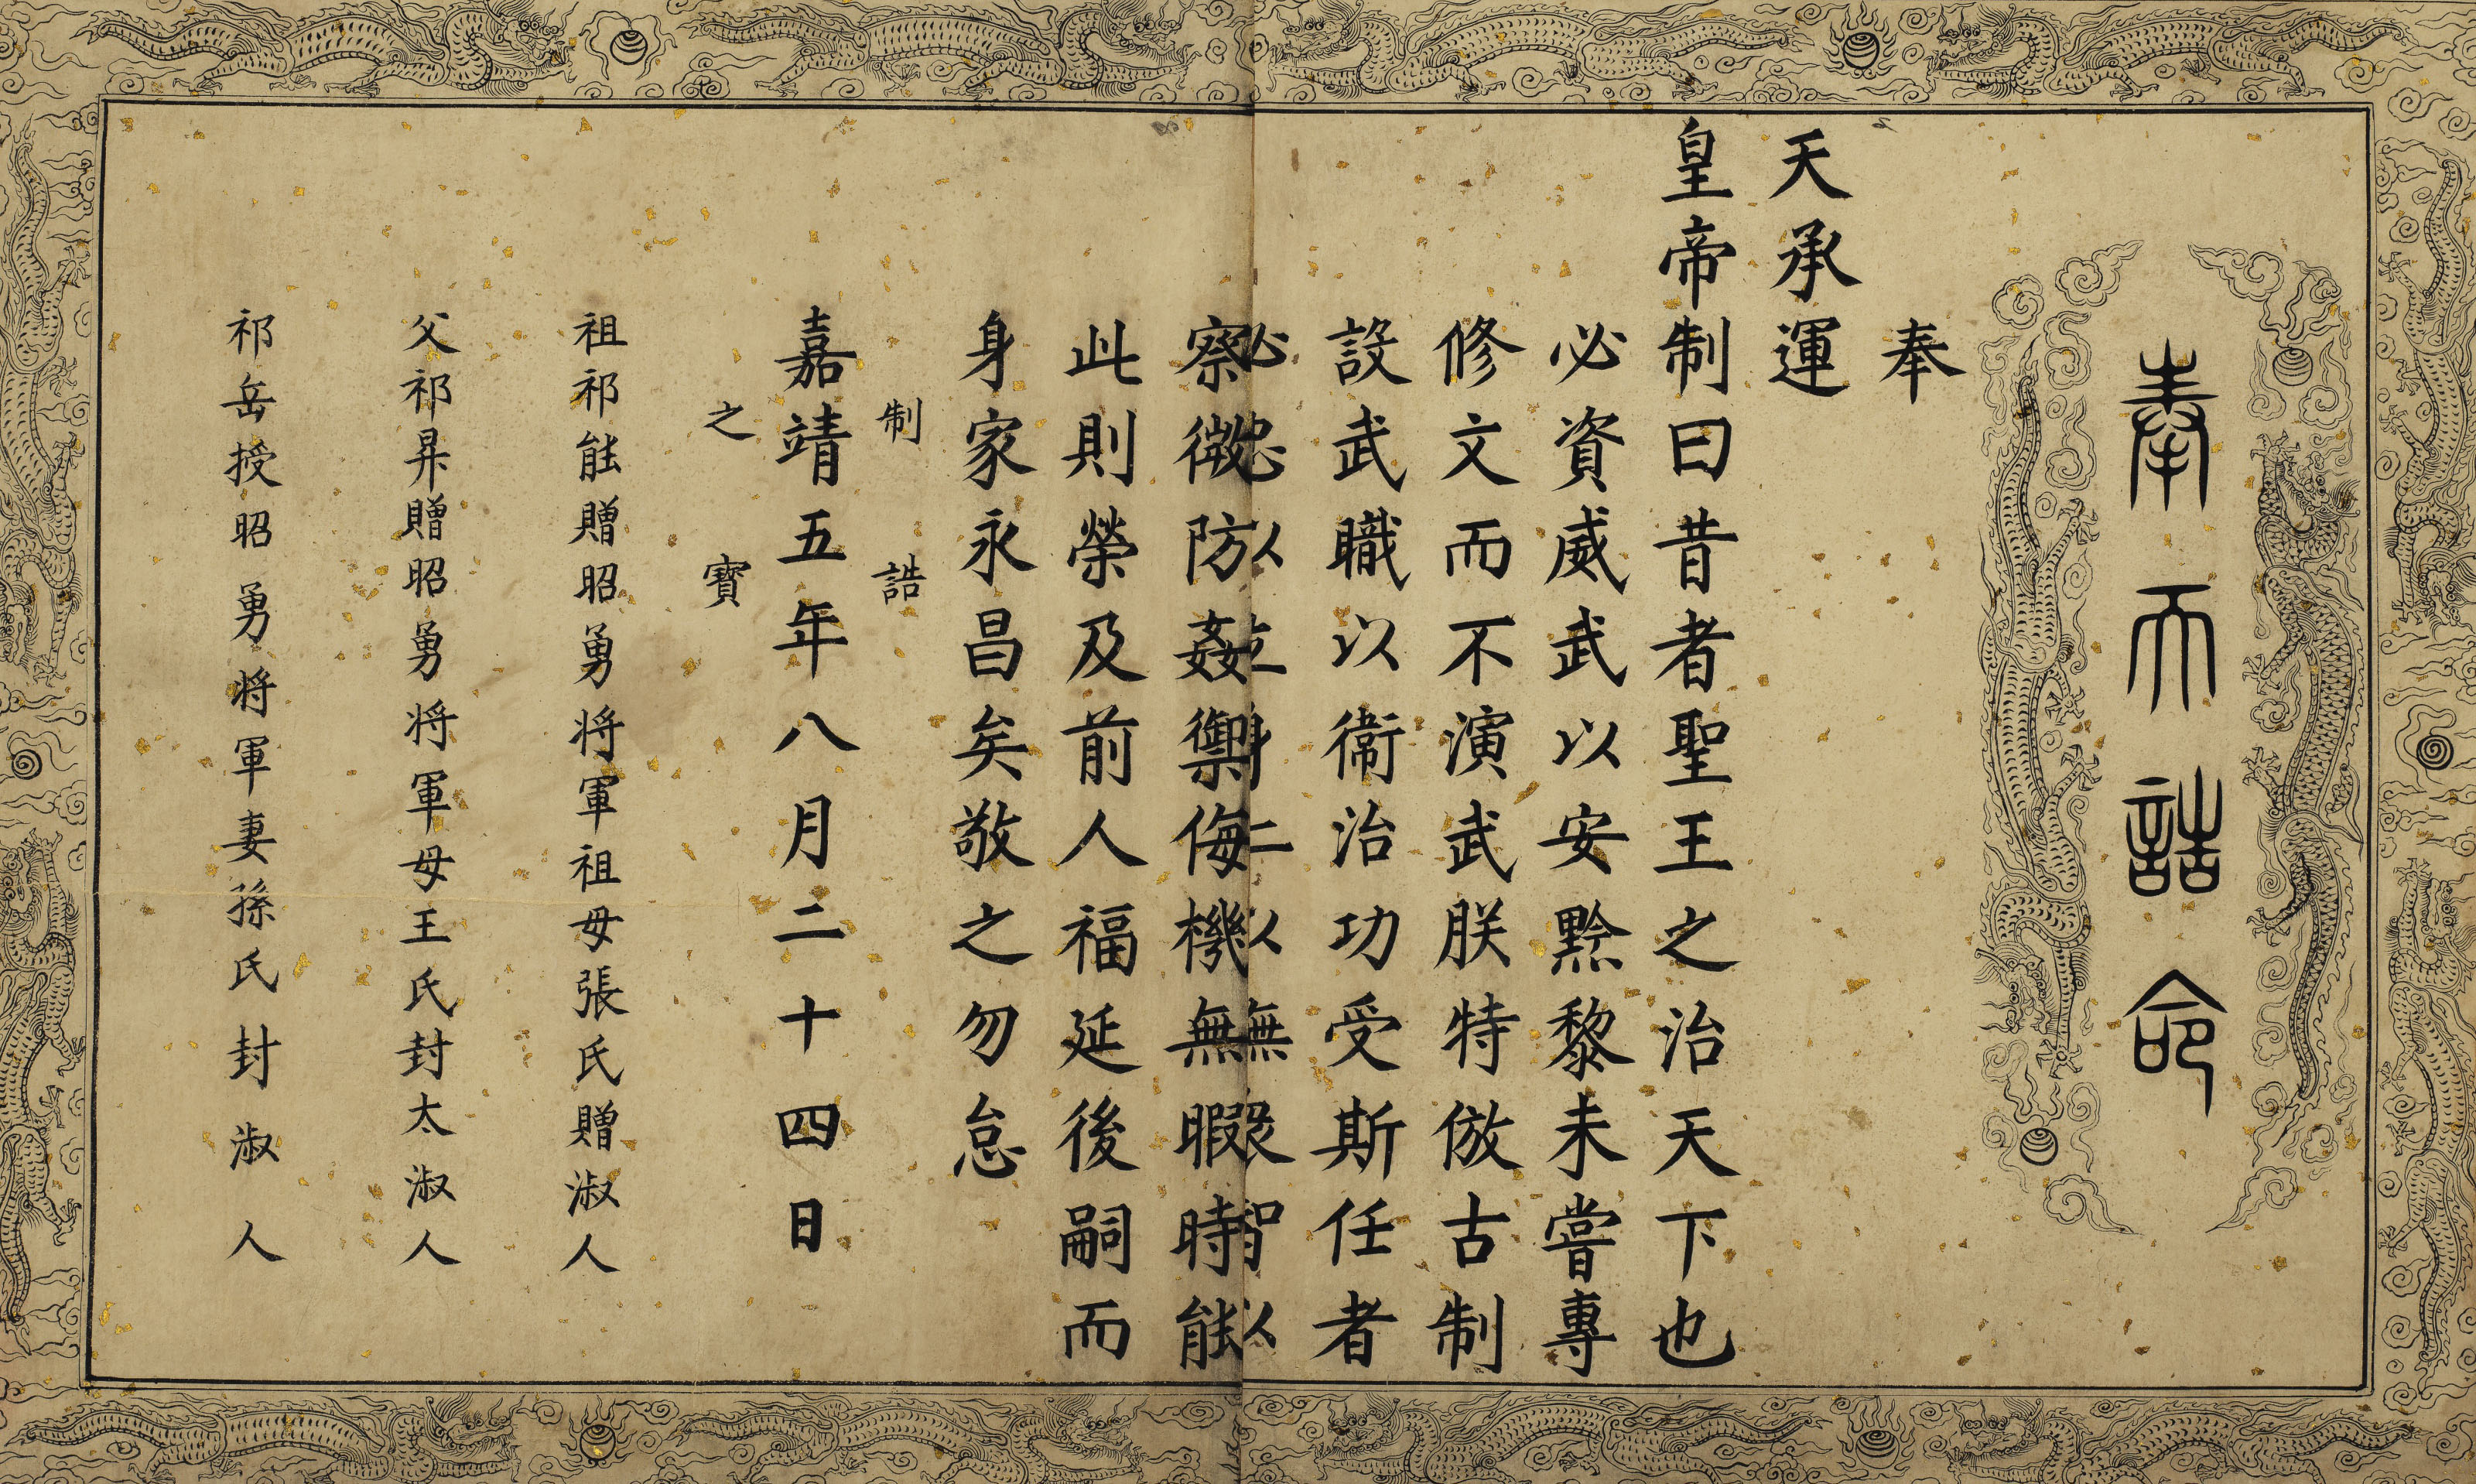 奉天誥命
奉
天承運
皇帝制曰昔者聖王之治天下也
必資威武以安黔黎未嘗專
修文而不演武朕特倣古制
設武職以衛治功受斯任者
必忠以立身仁以撫衆智以
察微防姦禦侮機無暇時能
此則榮及前人福延後嗣而
身家永昌矣敬之勿怠
制誥
嘉靖五年八月二十四日
之寶
祖祁能贈昭勇將軍祖母張氏贈淑人
父祁昇贈昭勇將軍母王氏封太淑人
祁岳授昭勇將軍妻孫氏封淑人